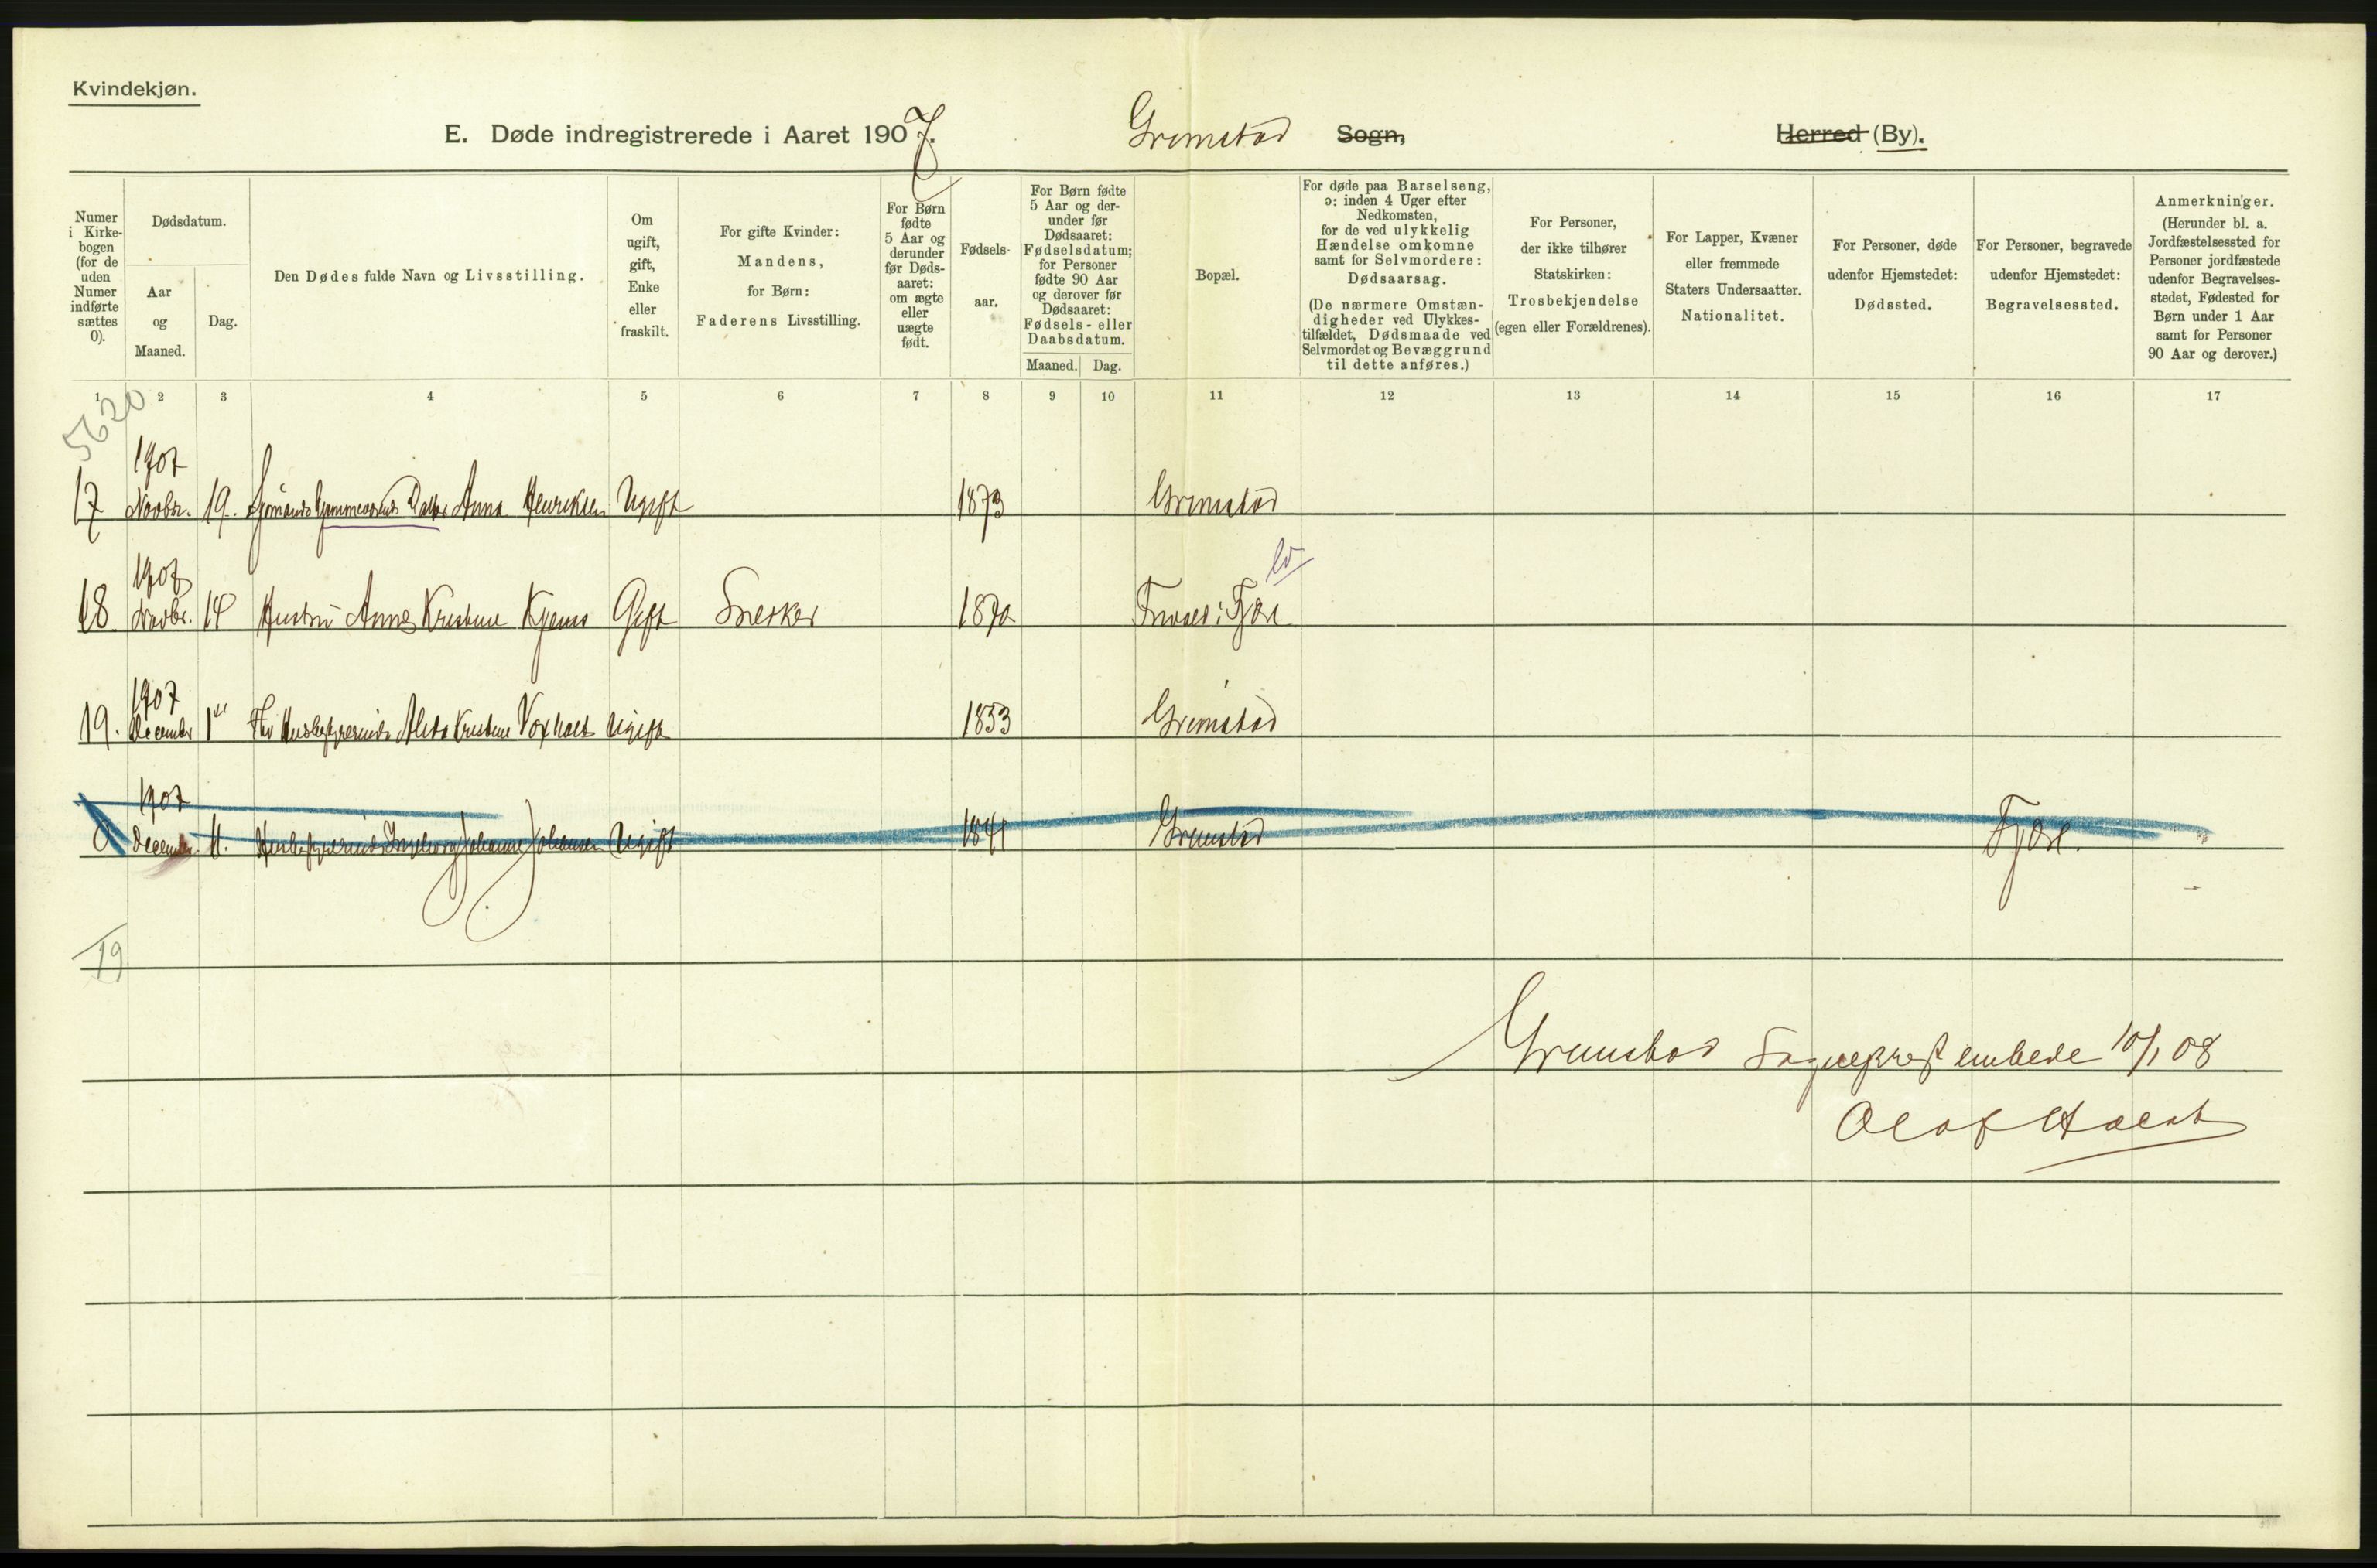 Kvindekjøn.
E. Døde indregistrerede i Aaret 1907. Grimstad Sogn, Herred (By).
Numer i Kirkebogen (for de uden Numer indførte sættes 0).
Dødsdatum.
Aar og Maaned.
Dag.
Den Dødes fulde Navn og Livsstilling.
Om ugift, gift, Enke eller fraskilt.
For gifte Kvinder: Mandens, for Børn: Faderens Livsstilling.
For Børn fødte 5 Aar og derunder før Dødsaaret: om ægte eller uægte født.
Fødselsaar.
For Børn fødte 5 Aar og derunder før Dødsaaret: Fødselsdatum; for Personer fødte 90 Aar og derover før Dødsaaret: Fødsels- eller Daabsdatum.
Maaned. Dag.
Bopæl.
For døde paa Barselseng, ɔ: inden 4 Uger efter Nedkomsten, for de ved ulykkelig Hændelse omkomne samt for Selvmordere: Dødsaarsag.
(De nærmere Omstændigheder ved Ulykkestilfældet, Dødsmaade ved Selvmordet og Bevæggrund til dette anføres.)
For Personer, der ikke tilhører Statskirken: Trosbekjendelse (egen eller Forældrenes).
For Lapper, Kvæner eller fremmede Staters Undersaatter. Nationalitet.
For Personer, døde udenfor Hjemstedet: Dødssted.
For Personer, begravede udenfor Hjemstedet: Begravelsessted.
Anmerkninger.
(Herunder bl. a. Jordfæstelsessted for Personer jordfæstede udenfor Begravelsesstedet, Fødested for Børn under 1 Aar samt for Personer 90 Aar og derover.)
1 2 3 4 5 6 7 8 9 10 11 12 13 14 15 16 17
5620
1907
17 Novbr. 19. Datter Anna Henriksen Ugift 1873 Grimstad
1907
18 Novbr. 14 Hustru Anne Kristine Gift Snekker 1870 Fjære
1907
19. December 1 Frk Husbestyrerinde Kristine Voxholt Ugift 1853 Grimstad
1907
0 December 11. Husbestyrerinde Ingeborg Johanne Johansen Ugift 1841 Grimstad Fjære.
19
Grimstad Sogneprestembede 10/1 08
Olaf Holst